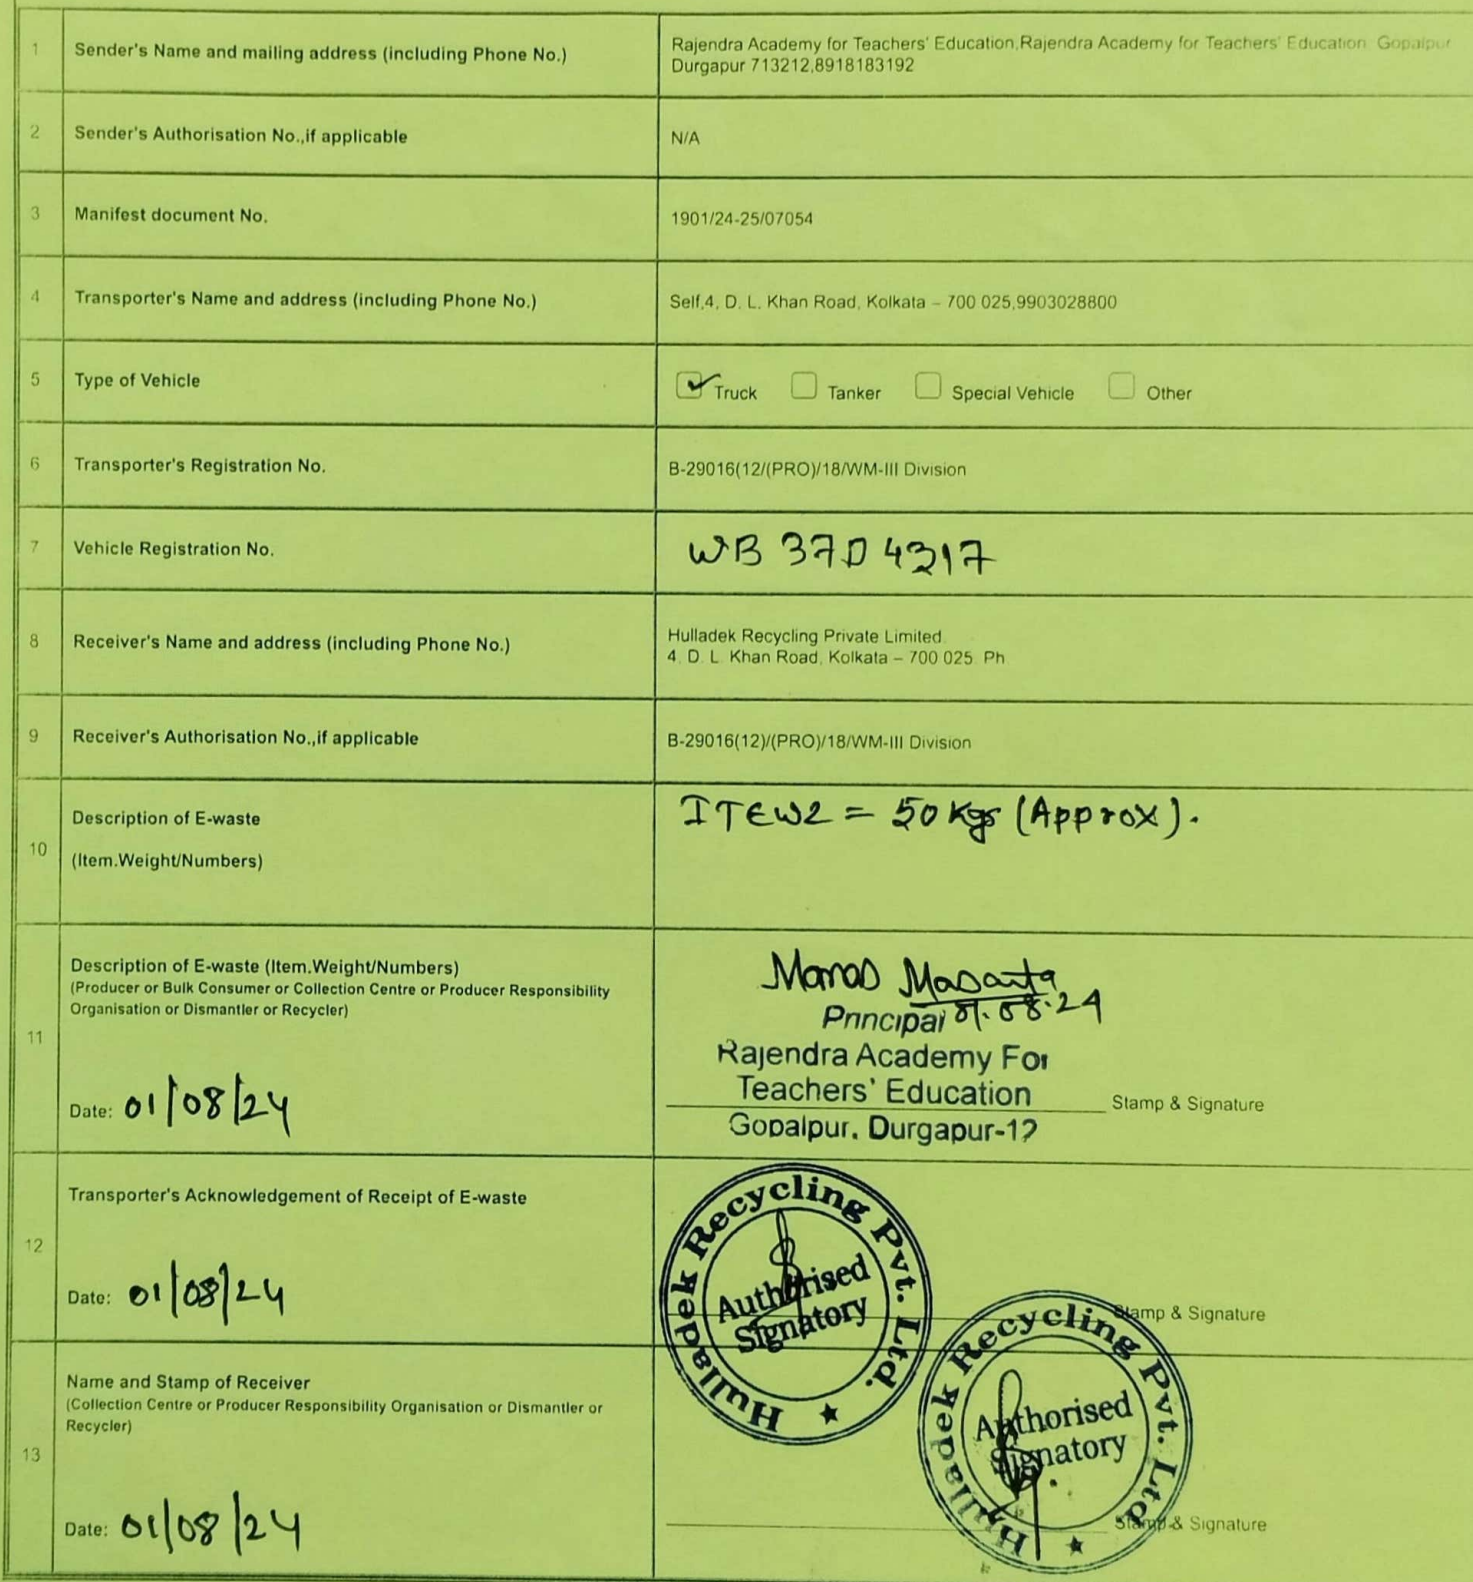 1 Sender's Name and mailing address (including Phone No.)
Rajendra Academy for Teachers' Education,Rajendra Academy for Teachers' Education Gopalpur
Durgapur 713212,8918183192
2 Sender's Authorisation No.,if applicable
N/A
3 Manifest document No.
1901/24-25/07054
4 Transporter's Name and address (including Phone No.)
Self,4, D. L. Khan Road, Kolkata – 700 025,9903028800
5 Type of Vehicle
Truck Tanker Special Vehicle Other
6 Transporter's Registration No.
B-29016(12/(PRO)/18/WM-III Division
7 Vehicle Registration No.
WB 37D 4217
8 Receiver's Name and address (including Phone No.)
Hulladek Recycling Private Limited
4. D. L. Khan Road, Kolkata – 700 025. Ph
9 Receiver's Authorisation No.,if applicable
B-29016(12)/(PRO)/18/WM-III Division
10 Description of E-waste
(Item.Weight/Numbers)
ITEW2 = 50 Kgs (Approx).
11 Description of E-waste (Item.Weight/Numbers)
(Producer or Bulk Consumer or Collection Centre or Producer Responsibility
Organisation or Dismantler or Recycler)
Date: 01/08/24
Manas Masanta
Principal 01.08.24
Rajendra Academy For
Teachers' Education
Stamp & Signature
Gopalpur, Durgapur-12
12 Transporter's Acknowledgement of Receipt of E-waste
Date: 01/08/24
Hulladek Recycling Pvt. Ltd.
Authorised
Signatory
Stamp & Signature
13 Name and Stamp of Receiver
(Collection Centre or Producer Responsibility Organisation or Dismantler or
Recycler)
Date: 01/08/24
Hulladek Recycling Pvt. Ltd.
Authorised
Signatory
Stamp & Signature